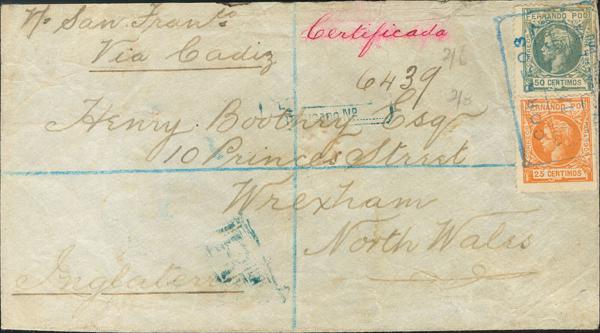 Vr San Franco
Via Cadiz
Certificada
6439
Henry Boothry Esqr
10 Princes Street
Wrexham
North Wales
Inglaterra
FERNANDO POO
50 CENTIMOS
FERNANDO POO
25 CENTIMOS